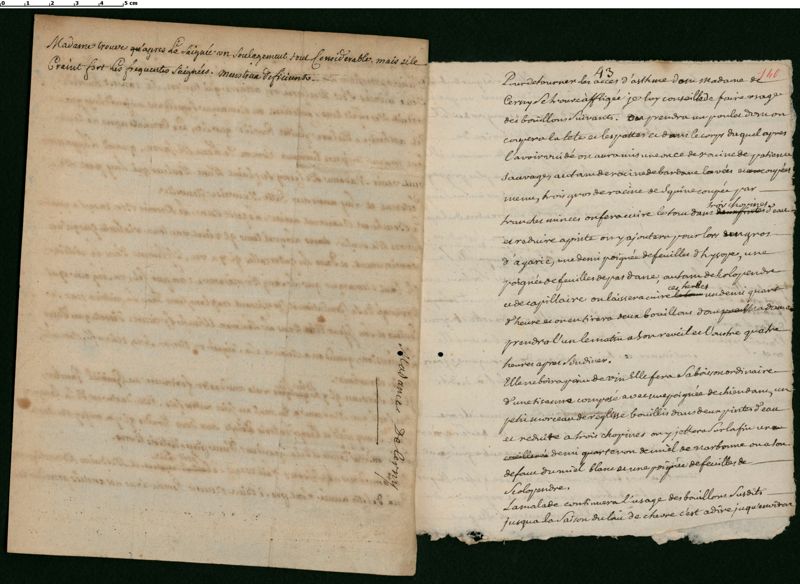 0 1 2 3 4 5 cm
Madame trouve qu'apres la Saignée un Soulagement tout Considerable, mais elle
Craint fort les frequentes Saignées.
Madames De Cerny
43
140
Pour detourner les acces d'asthme dont Madame de
Cerny Se trouve affligée je luy conseille de faire usage
des bouillons Suivants. On prendra un poulet dont on
coupera la tete et les pattes et dans le corps duquel apres
l'avoir vuidé on aura mis une once de racine de patience
Sauvage, autant de racine de bardane lavées et coupées
menu, trois gros de racine de Squine coupée par
tranches minces on fera cuire le tout dans trois chopines d'eau
et reduire a pinte on y ajoutera pour lors un gros
d'agaric, une demi poignée de feuilles d'hysope, une
poignée de feuilles de pas d'ane, autant de scolopendre
et de capillaire on laissera cuire ces herbes un demi quart
d'heure et on en tirera deux bouillons dont la malade
prendra l'un le matin a son reveil et l'autre quatre
heures apres Son diner.
Elle ne boira point de vin Elle fera Sa boisson ordinaire
d'une tisanne composé avec une poignée de chiendent, un
petit morceau de reglisse bouillis dans deux pintes d'eau
et reduite a trois chopines on y jettera Sur la fin un
demi quarteron de miel de narbonne ou a Son
defaut du miel blanc et une poignée de feuilles de
Scolopendre.
La malade continuera l'usage des bouillons Susdits
jusqu'a la Saison du lait de chevre c'est a dire jusqu'environ